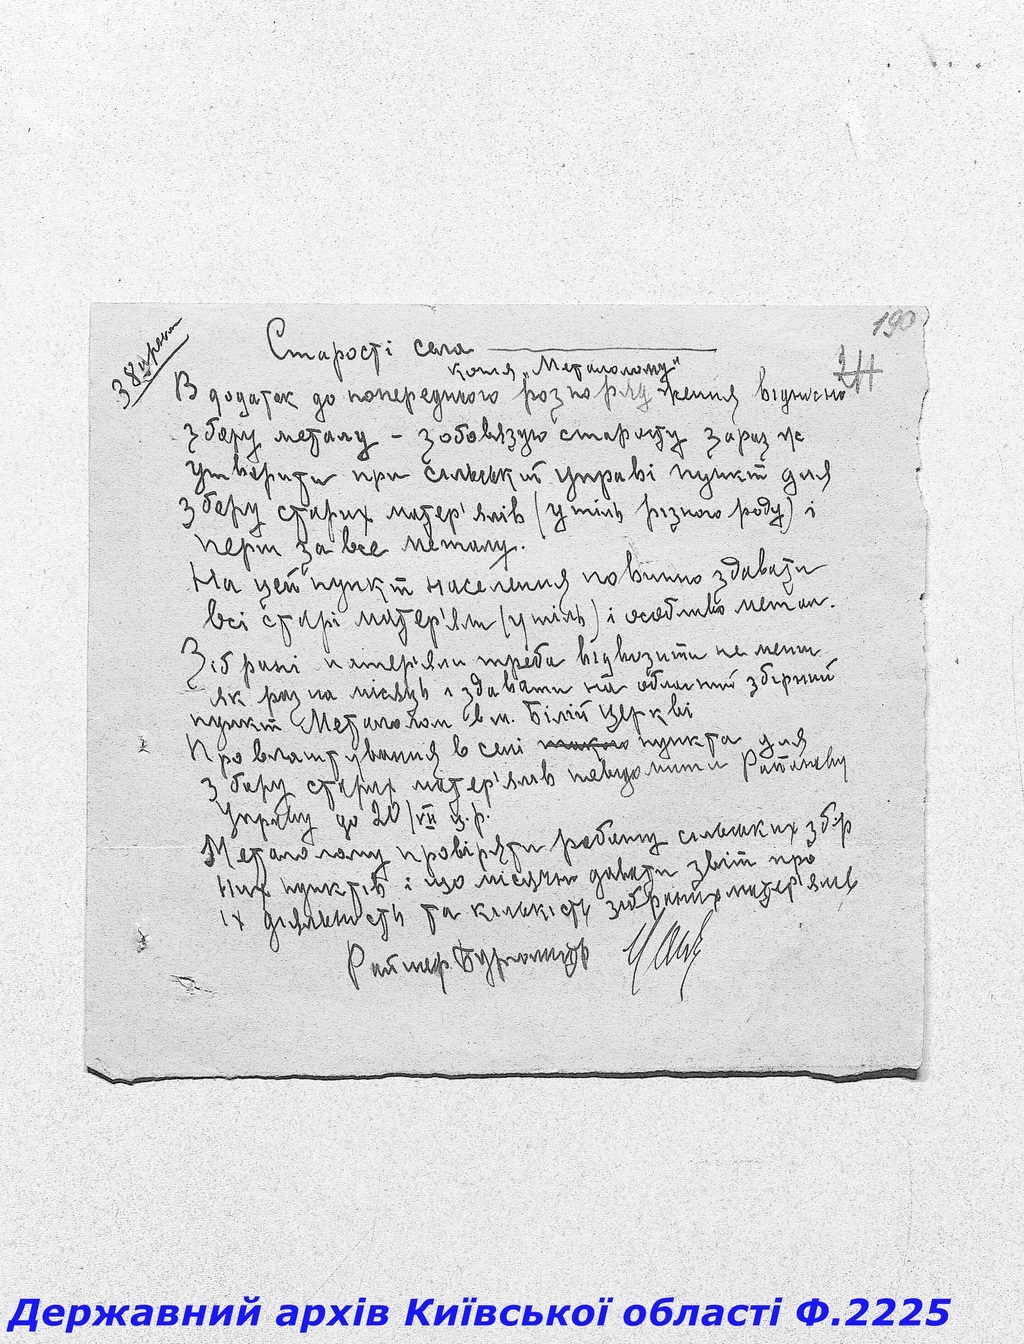 190
Старості села
копія „Металолому"
В додаток до попереднього розпорядження відносно
збору металу - зобовязую старосту зараз же
утворити при сільській управі пункт для
збору старих матер'ялів (утіль різного роду) і
перш за все металу.
На цей пункт населення повинно здавати
всі старі матер'яли (утіль) і особливо метал.
Зібрані матер'яли треба відвозити не менш
як раз на місяць і здавати на обласний збірний
пункт Металолом в м. Білій Церкві
Про влаштування в селі пункта для
збору старих матер'ялів повідомити Районову
Управу до 20/VII ц.р.
Металолому провіряти работу сільських збір
них пунктів і що місячно давати звіт про
їх діяльність та кількість зібраних матер'ялів
Бургомістр
Державний архів Київської області Ф.2225